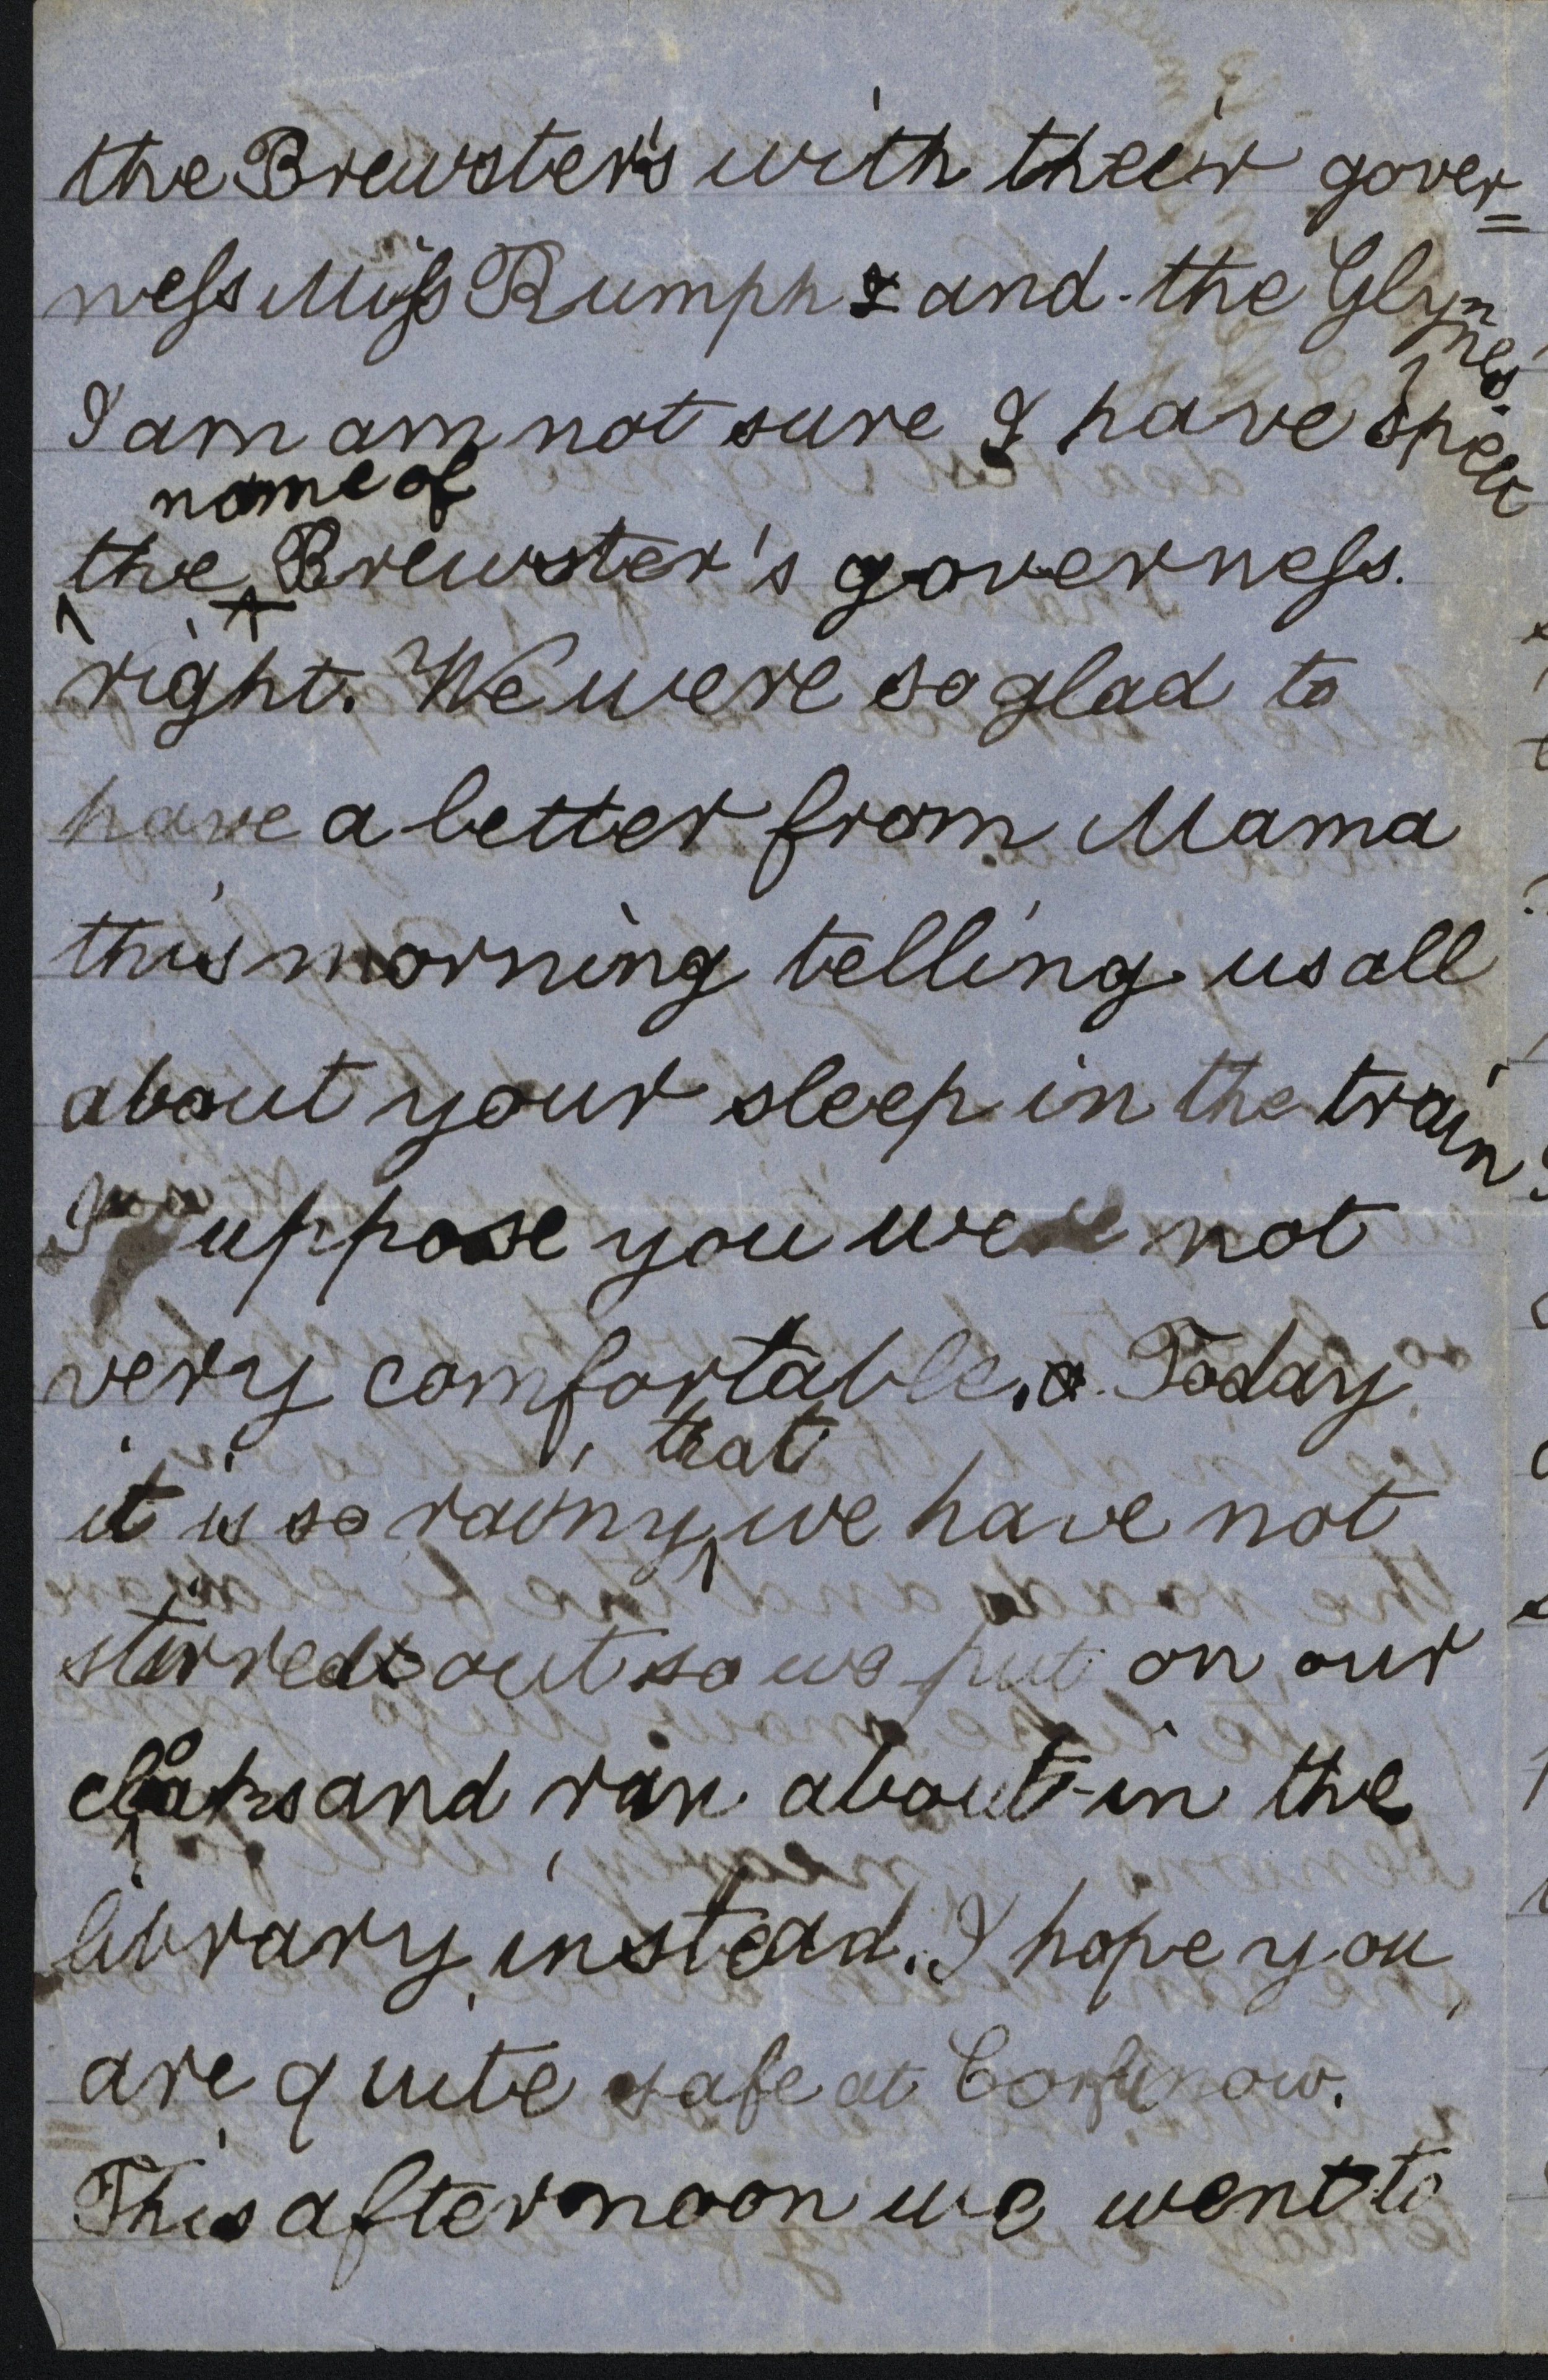 the Brewster's with their gover=
ness Miss Rumph & and the Glynnes.
I am am not sure I have spelt
name of
the Brewster's governess.
right. We were so glad to
have a letter from Mama
this morning telling us all
about your sleep in the train
I suppose you were not
very comfortable. Today
that
it is so rainy we have not
stirred out so we put on our
cloaks and ran about in the
library instead. I hope you
are quite safe at Corfu now.
This afternoon we went to